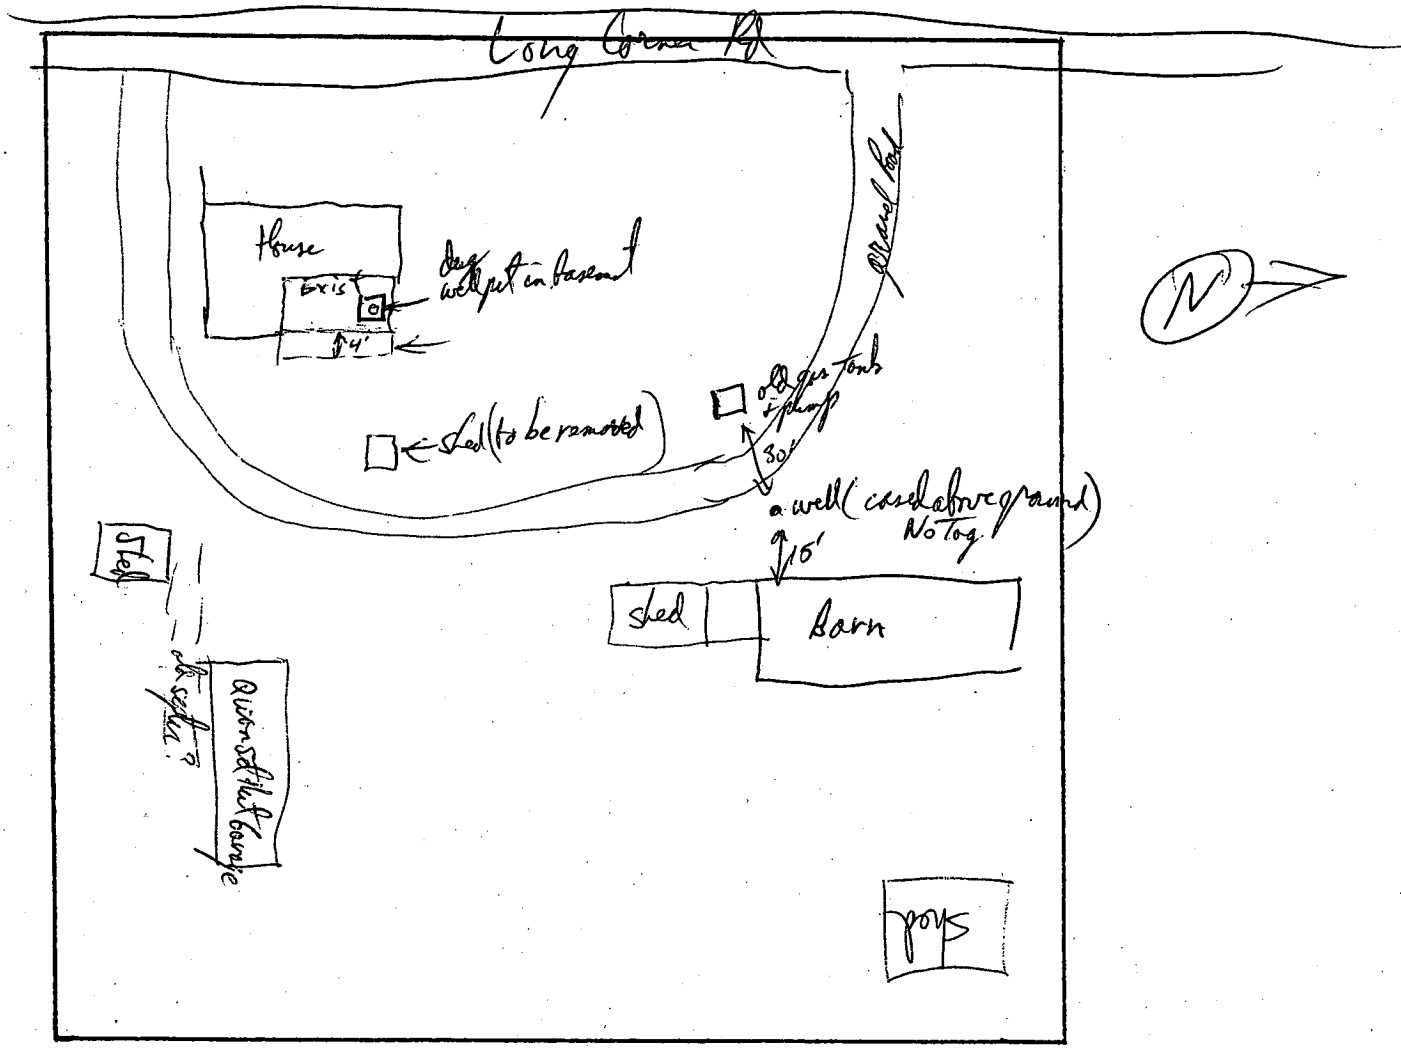 Long Corner Rd
gravel Road
House
dug
well pit in basement
Exis
4'
N
old gas Tank
+ pump
shed (to be removed)
30'
well (cased above ground)
No Tag
15'
Shed
shed
Barn
old septic?
Quonset Hut Garage
Shed